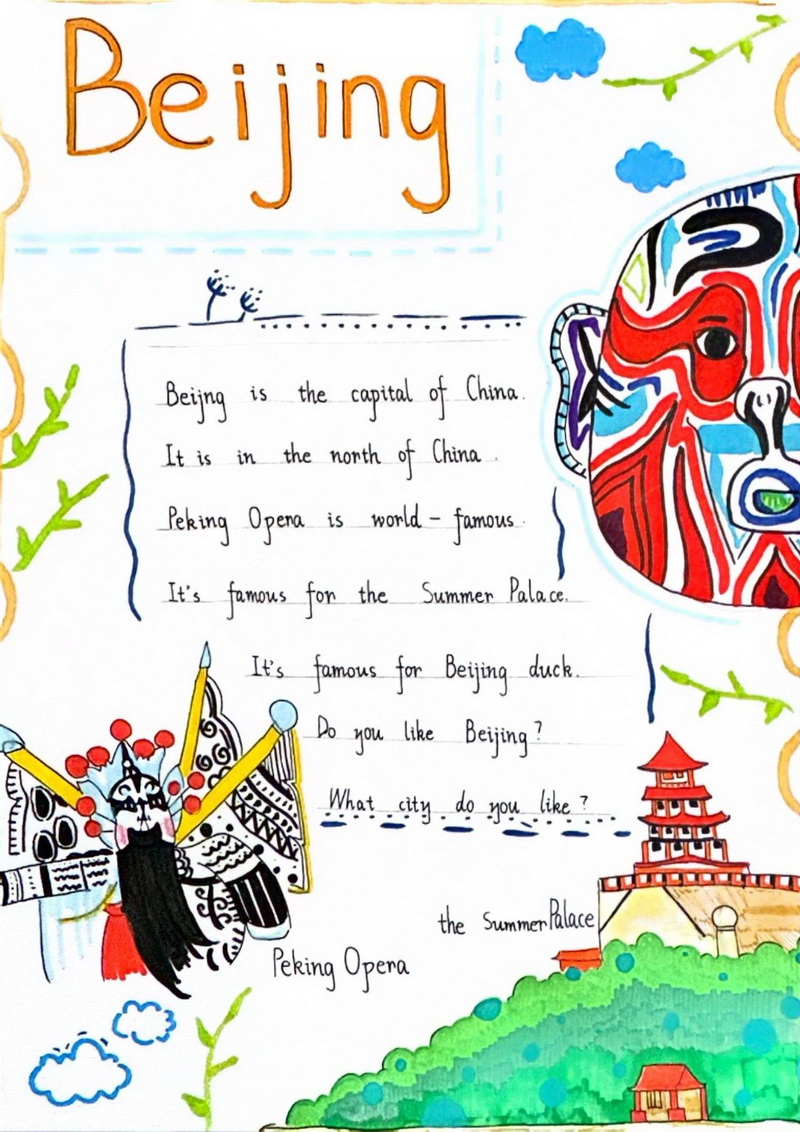 Beijing
Beijng is the capital of China.
It is in the north of China.
Peking Opera is world-famous.
It's famous for the Summer Palace.
It's famous for Beijing duck.
Do you like Beijing?
What city do you like?
the Summer Palace
Peking Opera